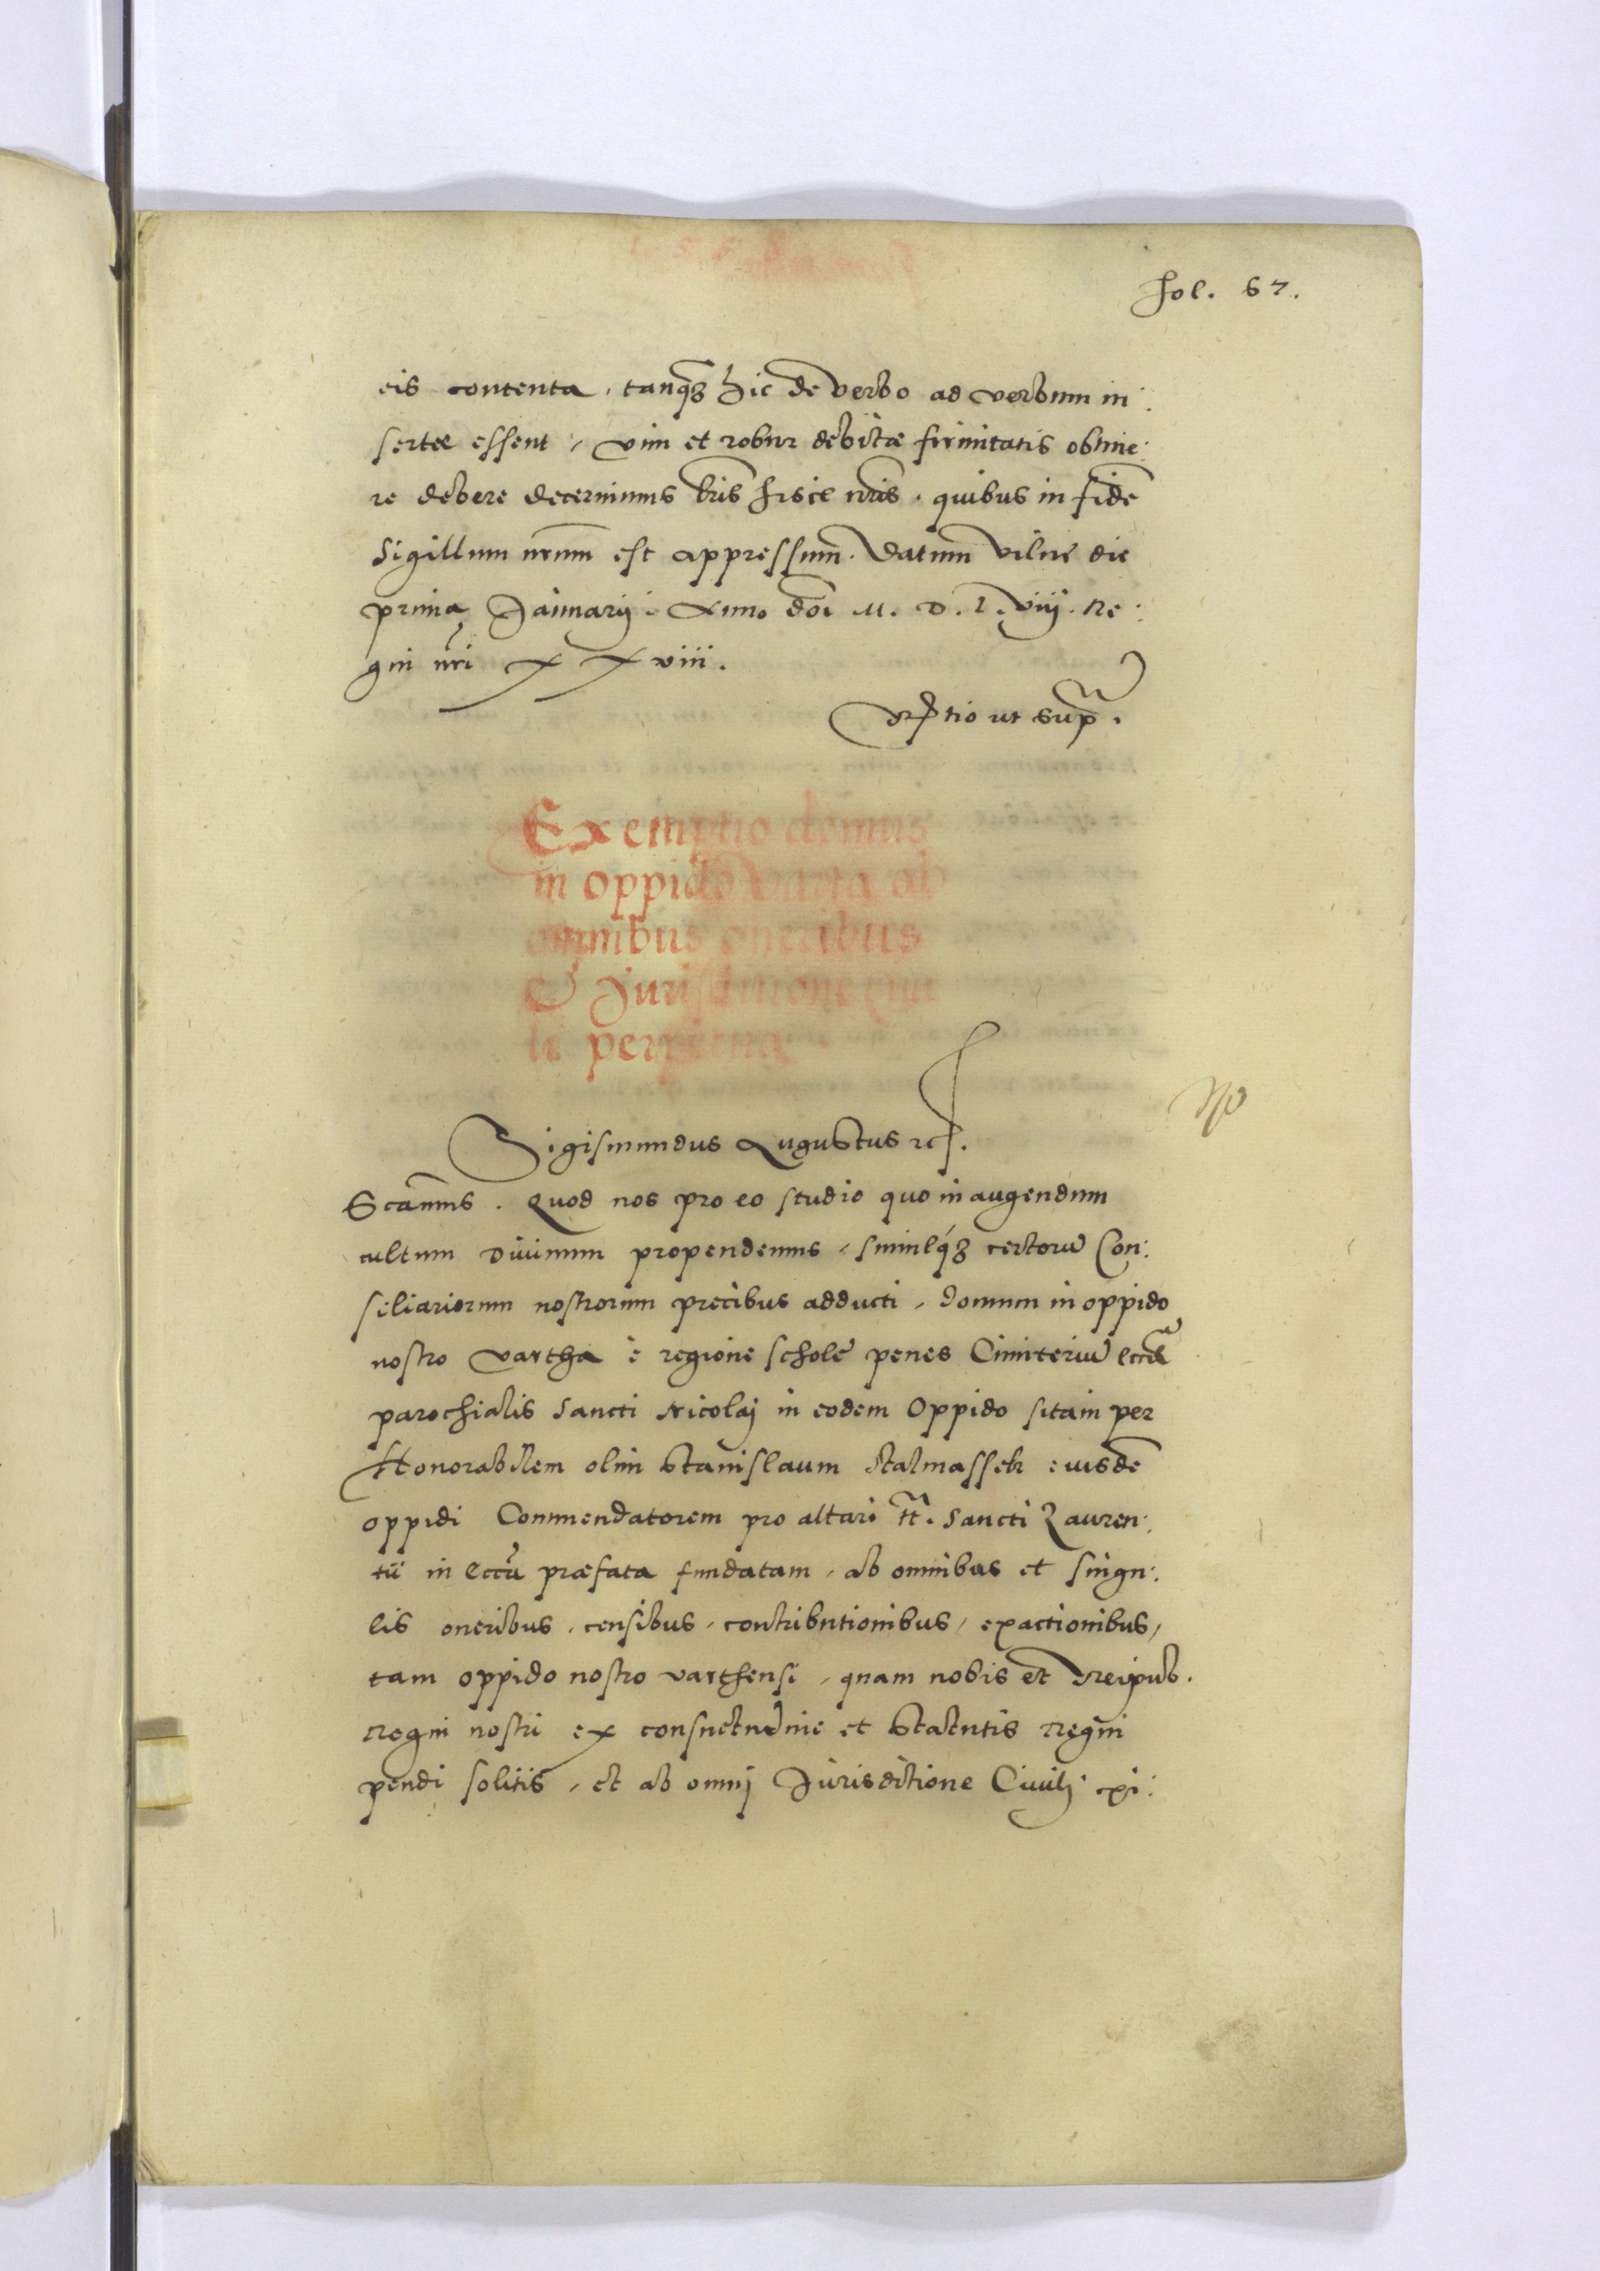 fol. 67.
eis contenta, tanq₃ hic de verbo ad verbum in:
sertae essent, vim et robur debitae firmitatis obtine:
re debere decernimus lris hisce nris. quibus in fidē
Sigillum nrum est appressum. Datum Vilne die
prima Januarij. Anno doi M. D. L. viij. Re:
gni nri xxviii.
ut supᵃ.
Exemptio domus
in oppido Varta ab
omnibus oneribus
& Jurisditione Ciui
li perpetua
Sigismundus Augustus rc.
Scamus. Quod nos pro eo studio quo in augendum
cultum Diuinum propendemus, simulq́₃ certorū Con:
siliariorum nostrorum precibus adducti, domum in oppido
nostro Vartha è regione schole penes Cimiteriū eccliae
parochialis Sancti Nicolaj in eodem Oppido sitam per
Honorabilem olim Stanislaum Stalmasseh eiusdē
oppidi Commendatorem pro altari tt. Sancti Lauren:
tii in eccliâ praefata fundatam, ab omnibus et singu:
lis oneribus, censibus, contributionibus, exactionibus,
tam oppido nostro Varthensi, quam nobis et Reipub.
Regni nostri ex consuetudine et Statutis Regni
pendi solitis, et ab omnj Jurisditione Ciuilj exi: